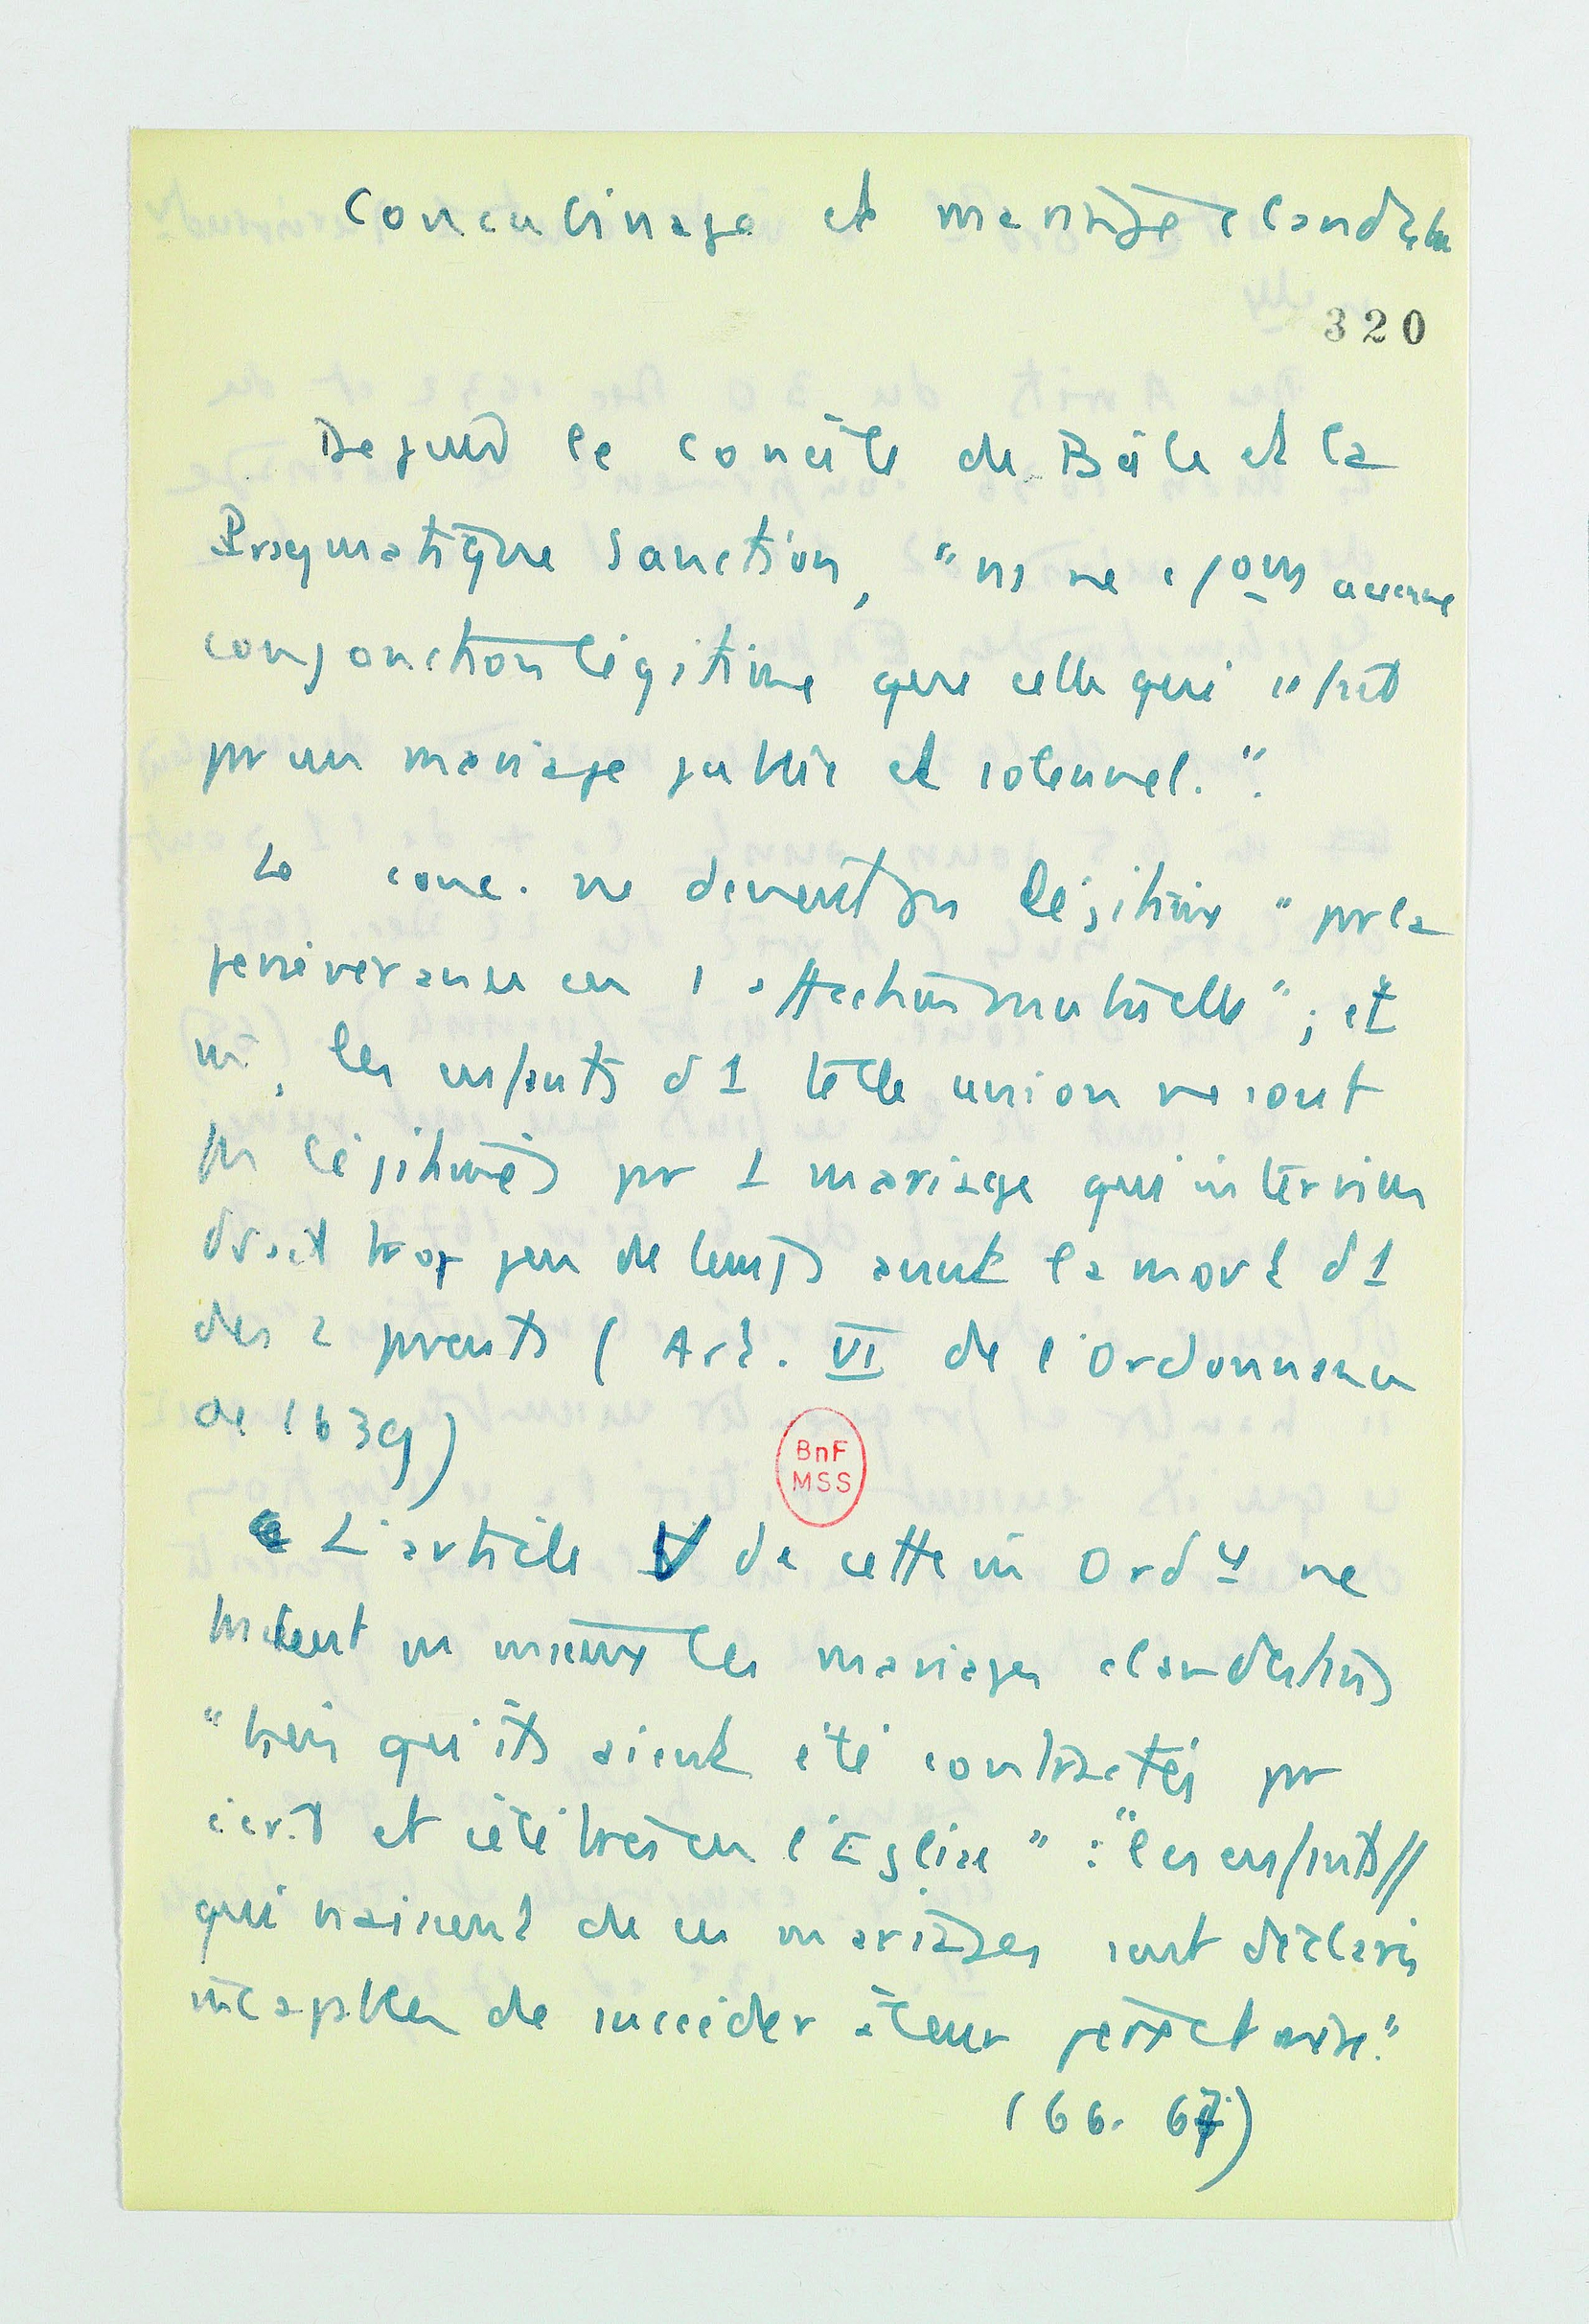 Concubinage et mariage clandestin
320
Depuis le concile de Bâle et la
Pragmatique Sanction, " ns ne avons aucune
conjonction légitime que celle qui se fait
pr un mariage public et solennel.".
Le conc. ne devient pas légitime " pr la
persévérance en 1 affection mutuelle" ; et
m̂, les enfants d 1 telle union ne sont
pas légitimés pr 1 mariage qui intervien
drait trop peu de temps avant la mort d 1
des 2 parents ( Art. VI de l'Ordonnance
de 1639)
BnF
MSS
L'article V de cette m̂ Ord ne
traitent pas mieux les mariages clandestins
"bien qu'ils aient été contractés pr
écrit et célébrés en l'Eglise" : "les enfants //
qui naissent de ces mariages sont déclarés
incapables de succéder à leur père et mère."
(66. 67)